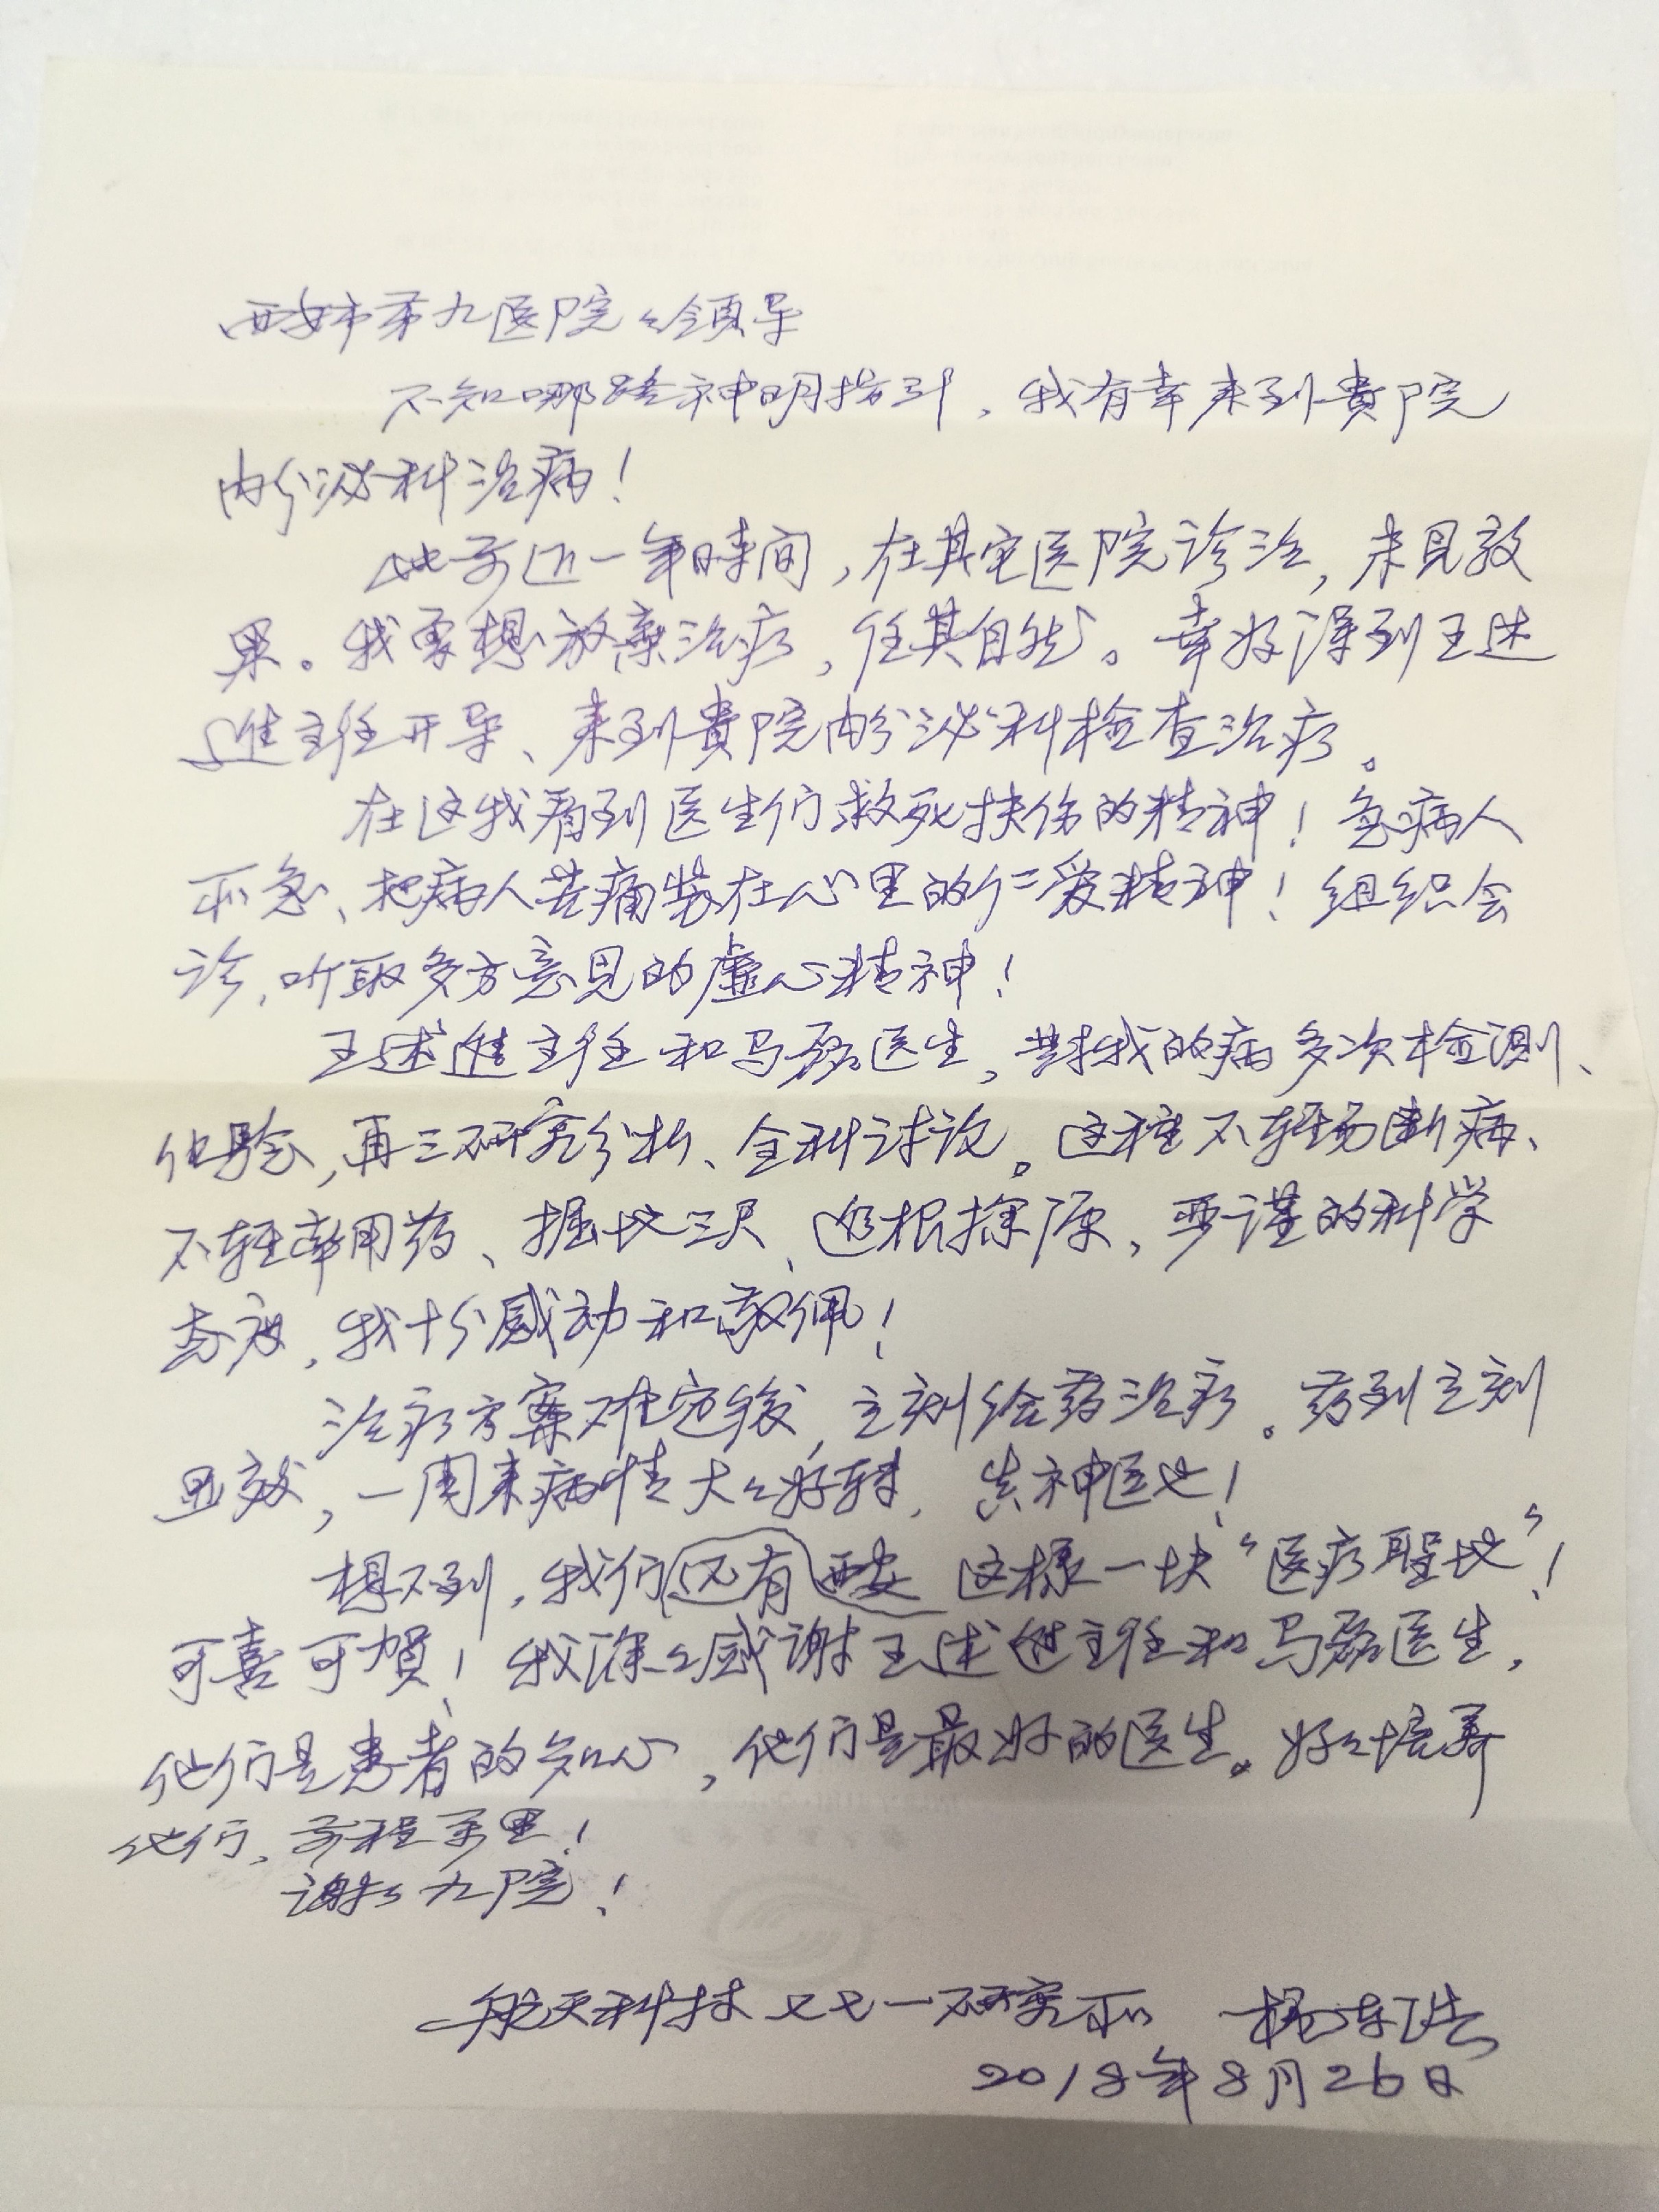 西安市第九医院院领导
不知哪路神明指引，我有幸来到貴院
内分泌科治病！
此前近一年時间，在其它医院诊治，未见效
果。我曾想放棄治疗，任其自然。幸好得到王述
進主任开导、来到貴院内分泌科检查治疗。
在这我看到医生们救死扶伤的精神！急病人
所急、把病人苦痛装在心里的仁爱精神！组织会
诊，听取多方意见的虚心精神！
王述進主任和马磊医生，对我的病多次检测、
化驗，再三研究分析、全科讨论。这種不輕易断病、
不輕率用药、掘地三尺、追根探源，严谨的科学
态度，我十分感动和敬佩！
治疗方案确定後，立刻给药治疗。药到立刻
显效，一周来病情大大好转，真神医也！
想不到，我们西安还有这樣一块“医疗聖地”！
可喜可賀！我深深感谢王述進主任和马磊医生，
他们是患者的知心，他们是最好的医生。好好培养
他们，前程万里！
谢谢九院！
航天科技七七一研究所 楊
2018年8月26日